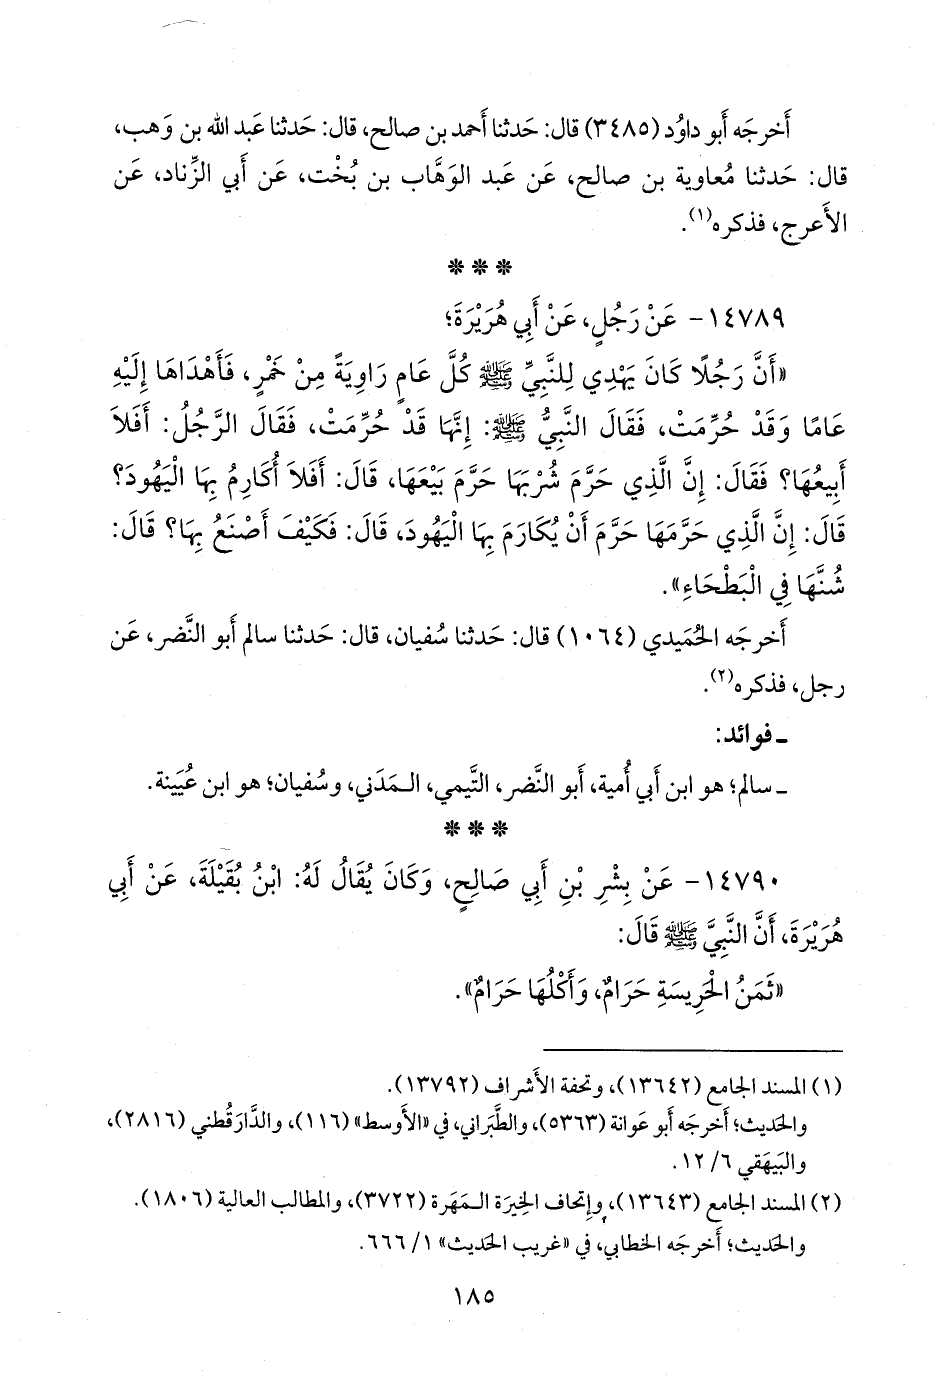 أَخرجَه أَبو داوُد (٣٤٨٥) قال: حَدثنا أَحمد بن صالح، قال: حَدثنا عَبد الله بن وَهب،
قال: حَدثنا مُعاوية بن صالح، عَن عَبد الوَهَّاب بن بُخْت، عَن أَبي الزِّناد، عَن
الأَعرج، فذكره(١).
***
١٤٧٨٩- عَنْ رَجُلٍ، عَنْ أَبِي هُرَيْرَةَ؛
«أَنَّ رَجُلًا كَانَ يَهْدِي لِلنَّبِيِّ ﷺ كُلَّ عَامٍ رَاوِيَةً مِنْ خَمْرٍ، فَأَهْدَاهَا إِلَيْهِ
عَامًا وَقَدْ حُرِّمَتْ، فَقَالَ النَّبِيُّ ﷺ: إِنَّهَا قَدْ حُرِّمَتْ، فَقَالَ الرَّجُلُ: أَفَلاَ
أَبِيعُهَا؟ فَقَالَ: إِنَّ الَّذِي حَرَّمَ شُرْبَهَا حَرَّمَ بَيْعَهَا، قَالَ: أَفَلاَ أُكَارِمُ بِهَا الْيَهُودَ؟
قَالَ: إِنَّ الَّذِي حَرَّمَهَا حَرَّمَ أَنْ يُكَارَمَ بِهَا الْيَهُودَ، قَالَ: فَكَيْفَ أَصْنَعُ بِهَا؟ قَالَ:
شُنَّهَا فِي الْبَطْحَاءِ».
أَخرجَه الحُمَيدي (١٠٦٤) قال: حَدثنا سُفيان، قال: حَدثنا سالم أَبو النَّضر، عَن
رجل، فذكره(٢).
ـ فوائد:
ـ سالم؛ هو ابن أَبي أُمية، أَبو النَّضر، التَّيمي، الـمَدَني، وسُفيان؛ هو ابن عُيَينة.
***
١٤٧٩٠- عَنْ بِشْرِ بْنِ أَبِي صَالِحٍ، وَكَانَ يُقَالُ لَهُ: ابْنُ بُقَيْلَةَ، عَنْ أَبِي
هُرَيْرَةَ، أَنَّ النَّبِيَّ ﷺ قَالَ:
«ثَمَنُ الْحَرِيسَةِ حَرَامٌ، وَأَكْلُهَا حَرَامٌ».
(١) المسند الجامع (١٣٦٤٢)، وتحفة الأَشراف (١٣٧٩٢).
والحَديث؛ أَخرجَه أَبو عَوانة (٥٣٦٣)، والطَّبَراني، في «الأَوسط» (١١٦)، والدَّارَقُطني (٢٨١٦)،
والبَيهَقي ٦/ ١٢.
(٢) المسند الجامع (١٣٦٤٣)، وإِتحاف الخِيرَة الـمَهَرة (٣٧٢٢)، والمطالب العالية (١٨٠٦).
والحَديث؛ أَخرجَه الخطابي، في «غريب الحَديث» ١/ ٦٦٦.
١٨٥